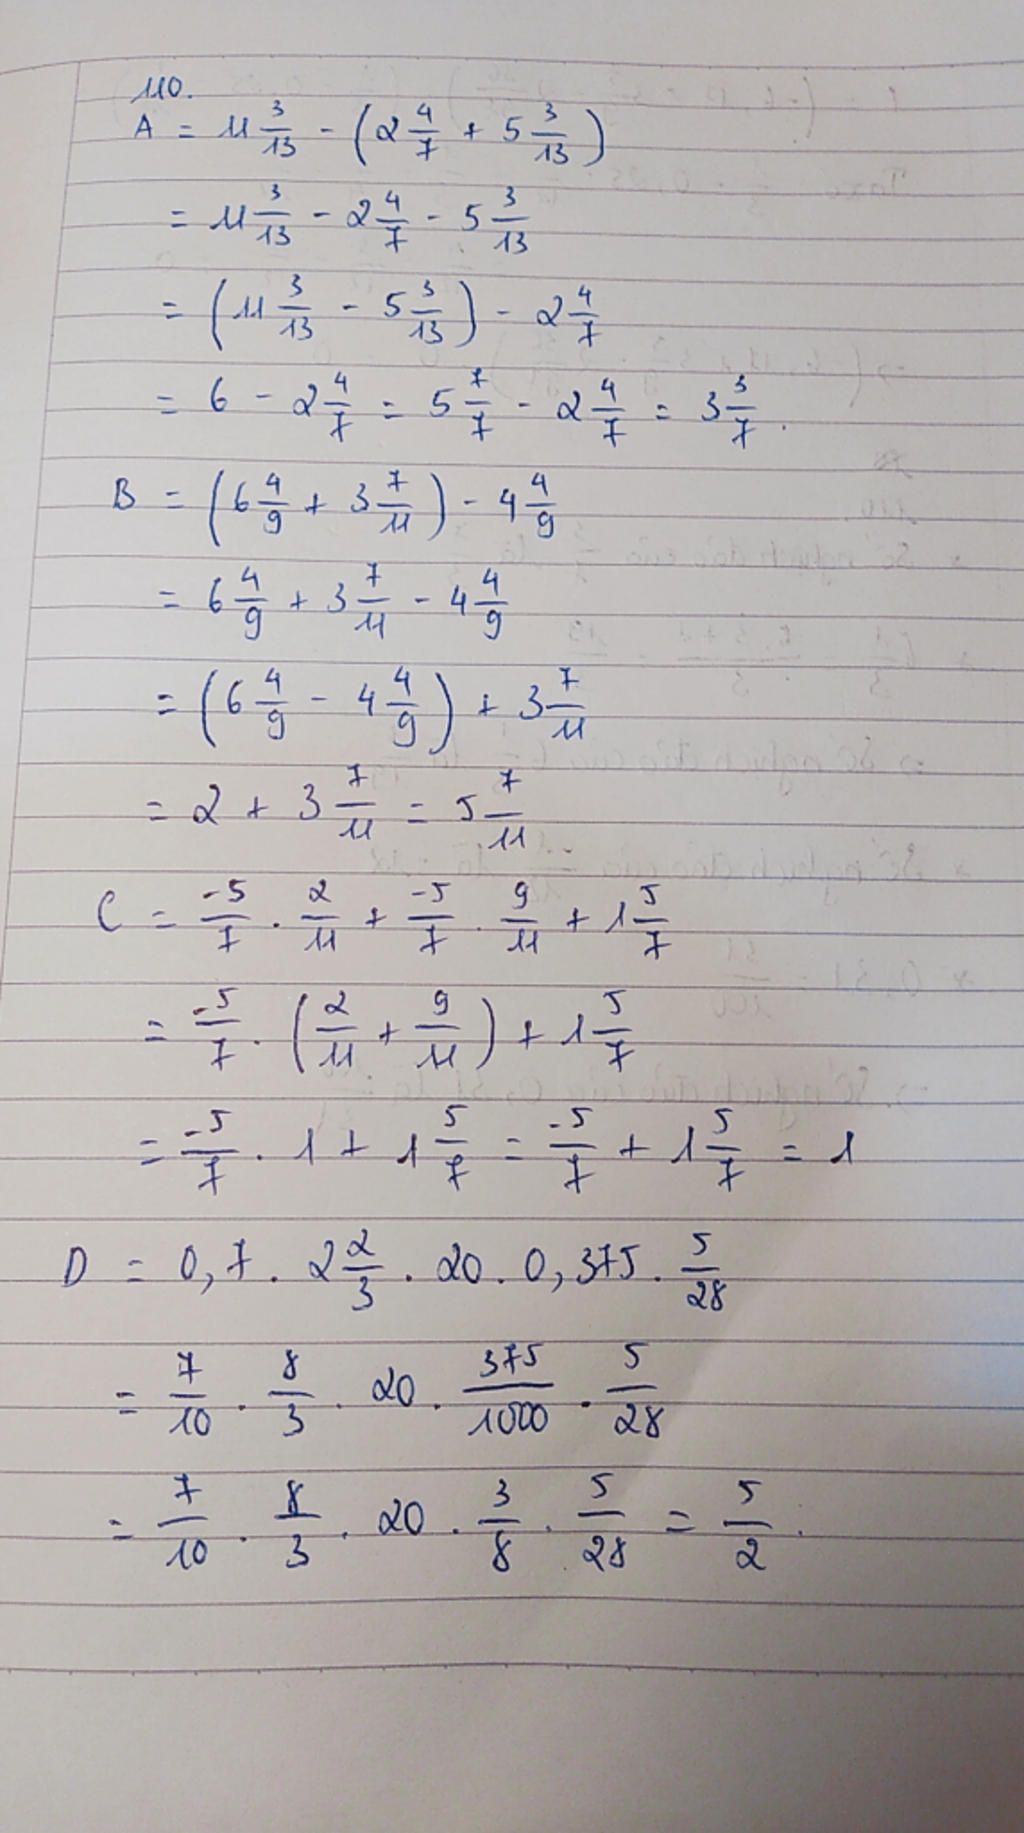 110.
A = 11 3/13 - (2 4/7 + 5 3/13)
= 11 3/13 - 2 4/7 - 5 3/13
= (11 3/13 - 5 3/13) - 2 4/7
= 6 - 2 4/7 = 5 7/7 - 2 4/7 = 3 3/7.
B = (6 4/9 + 3 7/11) - 4 4/9
= 6 4/9 + 3 7/11 - 4 4/9
= (6 4/9 - 4 4/9) + 3 7/11
= 2 + 3 7/11 = 5 7/11
C = -5/7 . 2/11 + -5/7 . 9/11 + 1 5/7
= -5/7 . (2/11 + 9/11) + 1 5/7
= -5/7 . 1 + 1 5/7 = -5/7 + 1 5/7 = 1
D = 0,7 . 2 2/3 . 20 . 0,375 . 5/28
= 7/10 . 8/3 . 20 . 375/1000 . 5/28
= 7/10 . 8/3 . 20 . 3/8 . 5/28 = 5/2.